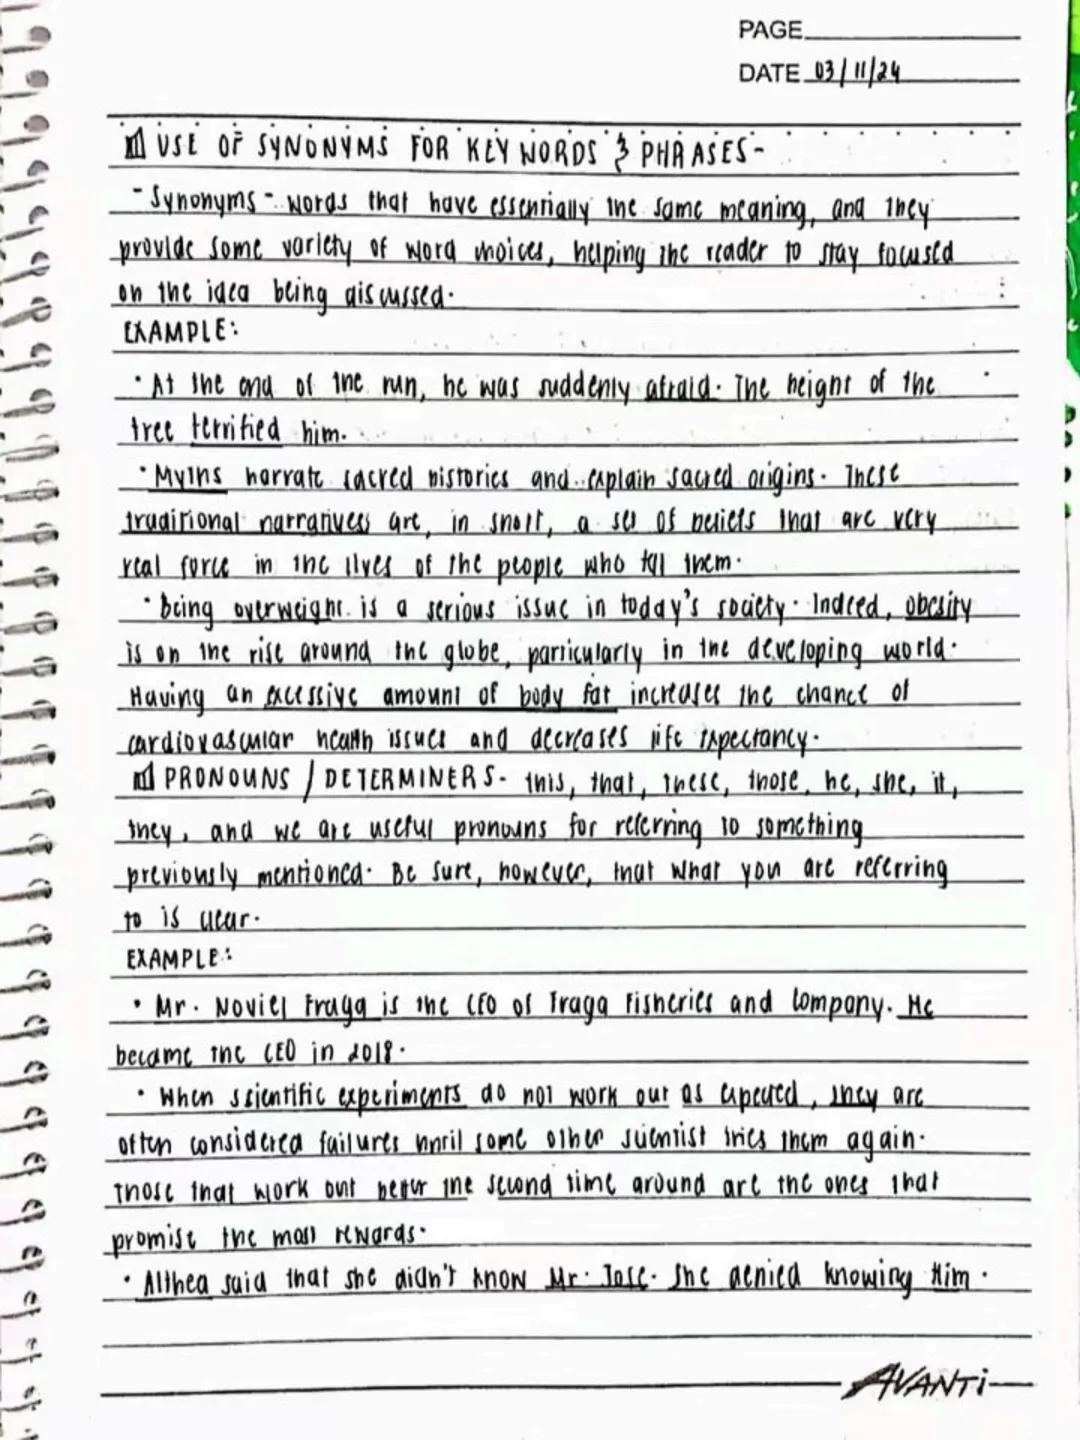 PAGE
DATE 03/11/24
USE OF SYNONYMS FOR KEY WORDS & PHRASES-
- Synonyms - words that have essentially the same meaning, and they
provide some variety of word choices, helping the reader to stay focused
on the idea being discussed.
EXAMPLE:
• At the end of the run, he was suddenly afraid. The height of the
tree terrified him.
• Myths narrate sacred histories and explain sacred origins. These
traditional narratives are, in short, a set of beliefs that are very
real force in the lives of the people who tell them.
• Being overweight is a serious issue in today's society. Indeed, obesity
is on the rise around the globe, particularly in the developing world.
Having an excessive amount of body fat increases the chance of
cardiovascular health issues and decreases life expectancy.
PRONOUNS / DETERMINERS- this, that, these, those, he, she, it,
they, and we are useful pronouns for referring to something
previously mentioned. Be sure, however, that what you are referring
to is clear.
EXAMPLE:
• Mr. Noviel Fraga is the CEO of Fraga Fisheries and Company. He
became the CEO in 2018.
• When scientific experiments do not work out as expected, they are
often considered failures until some other scientist tries them again.
Those that work out better the second time around are the ones that
promise the most rewards.
• Althea said that she didn't know Mr. Jose. She denied knowing Him.
AVANTi